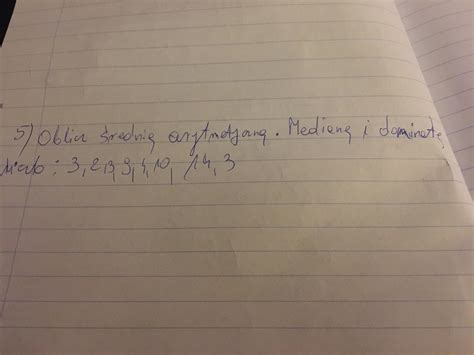 5) Oblicz średnią arytmetyczną. Medianę i dominatę
liczb: 3, 2, 3, 9, 1, 10, 14, 3